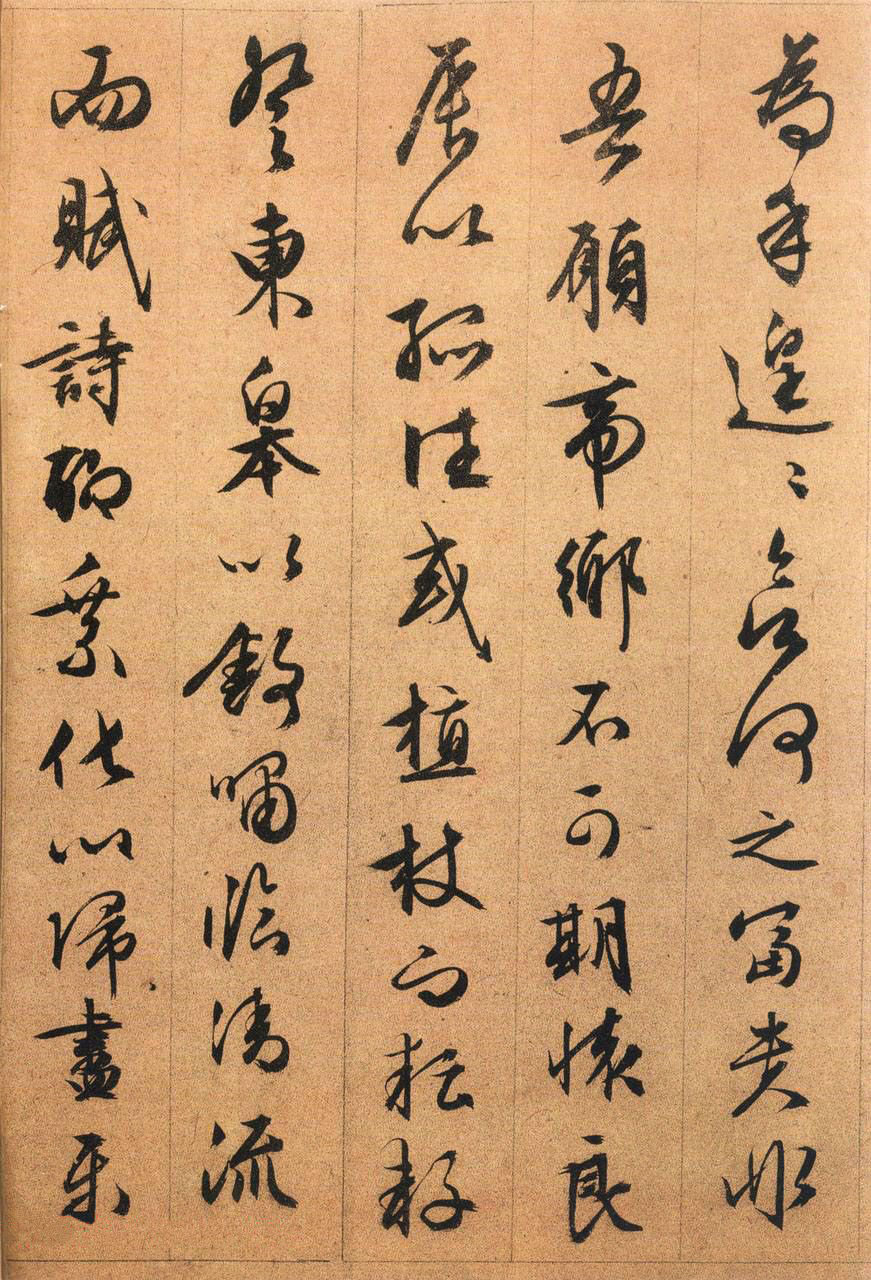 為乎遑〻欲何之富貴非
吾願帝鄉不可期懷良
辰以孤往或植杖而耘耔
登東皋以舒嘯臨清流
而賦詩聊乗化以歸盡樂